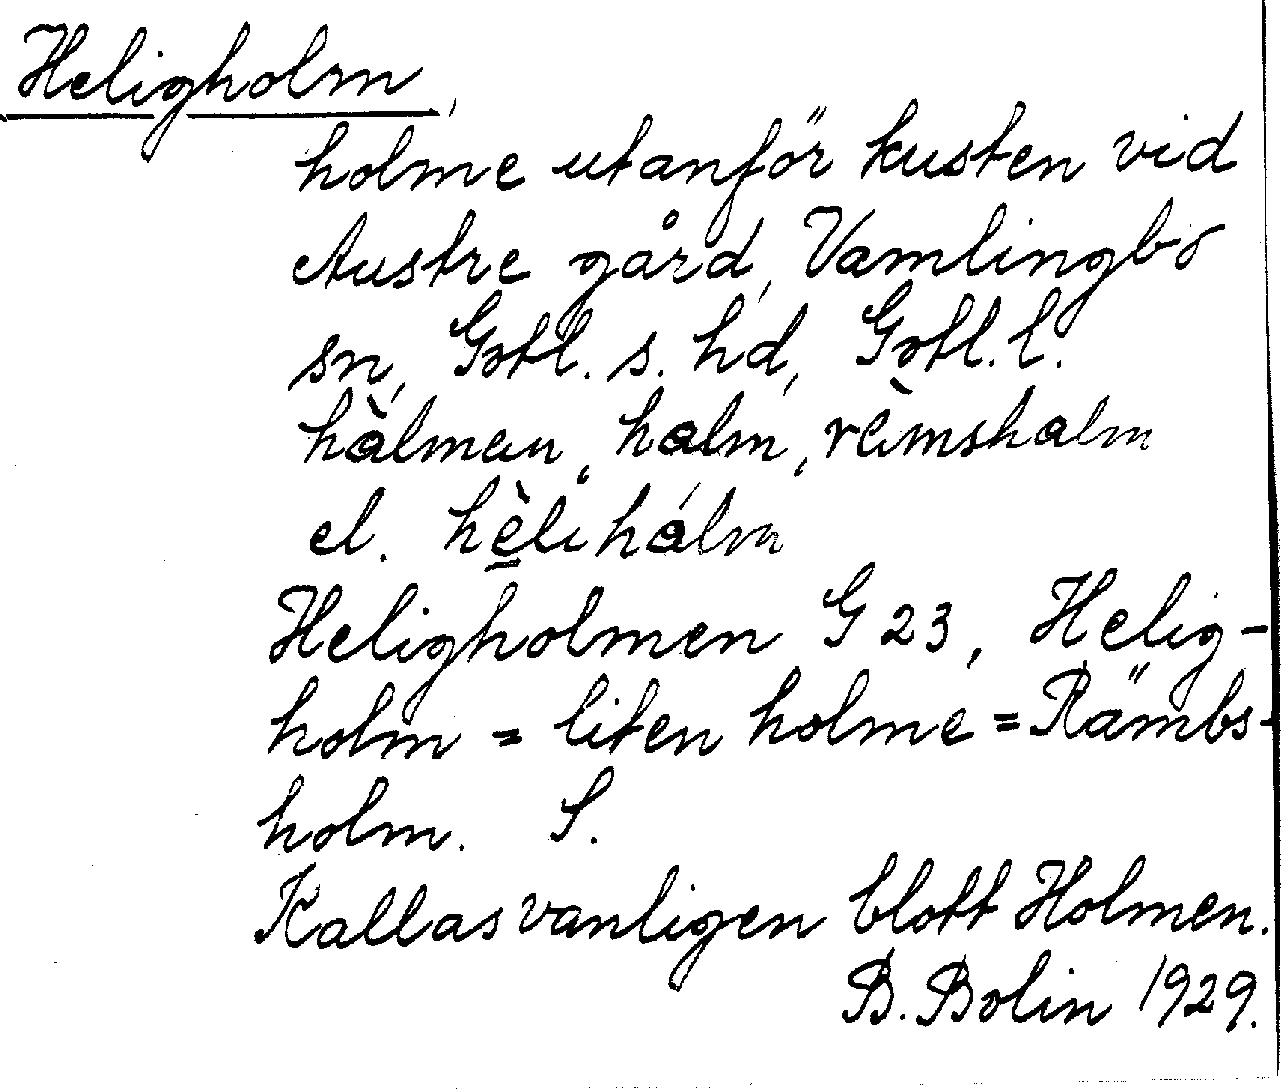 Heligholm,
holme utanför kusten vid
Austre gård, Vamlingbo
sn, Gotl. s. hd, Gotl. l.
hàlmen, halm, rèmshalm
el. hèlihálm
Heligholmen G 23, Helig-
holm = liten holme = Rämbs-
holm. S.
Kallas vanligen blott Holmen.
B. Bolin 1929.